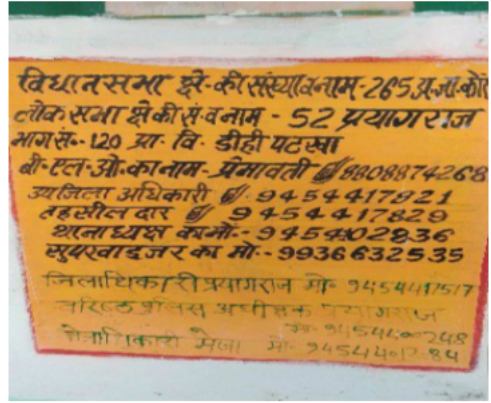 विधानसभा क्षे॰ की संख्या व नाम - 265 अ.जा. कोरां
लोक सभा क्षे की सं. व नाम - 52 प्रयागराज
भाग सं॰- 120 प्रा॰ वि॰ डीही पटखा
बी॰ एल॰ ओ॰ का नाम - प्रेमावती 8808874268
उपजिला अधिकारी 9454417821
तहसील दार 9454417829
थानाध्यक्ष का मो॰- 9454402836
सुपरवाइजर का मो॰- 9936632535
जिलाधिकारी प्रयागराज मो॰ 9454417517
वरिष्ठ पुलिस अधीक्षक प्रयागराज
मो॰ 9454400248
मेजा मो॰